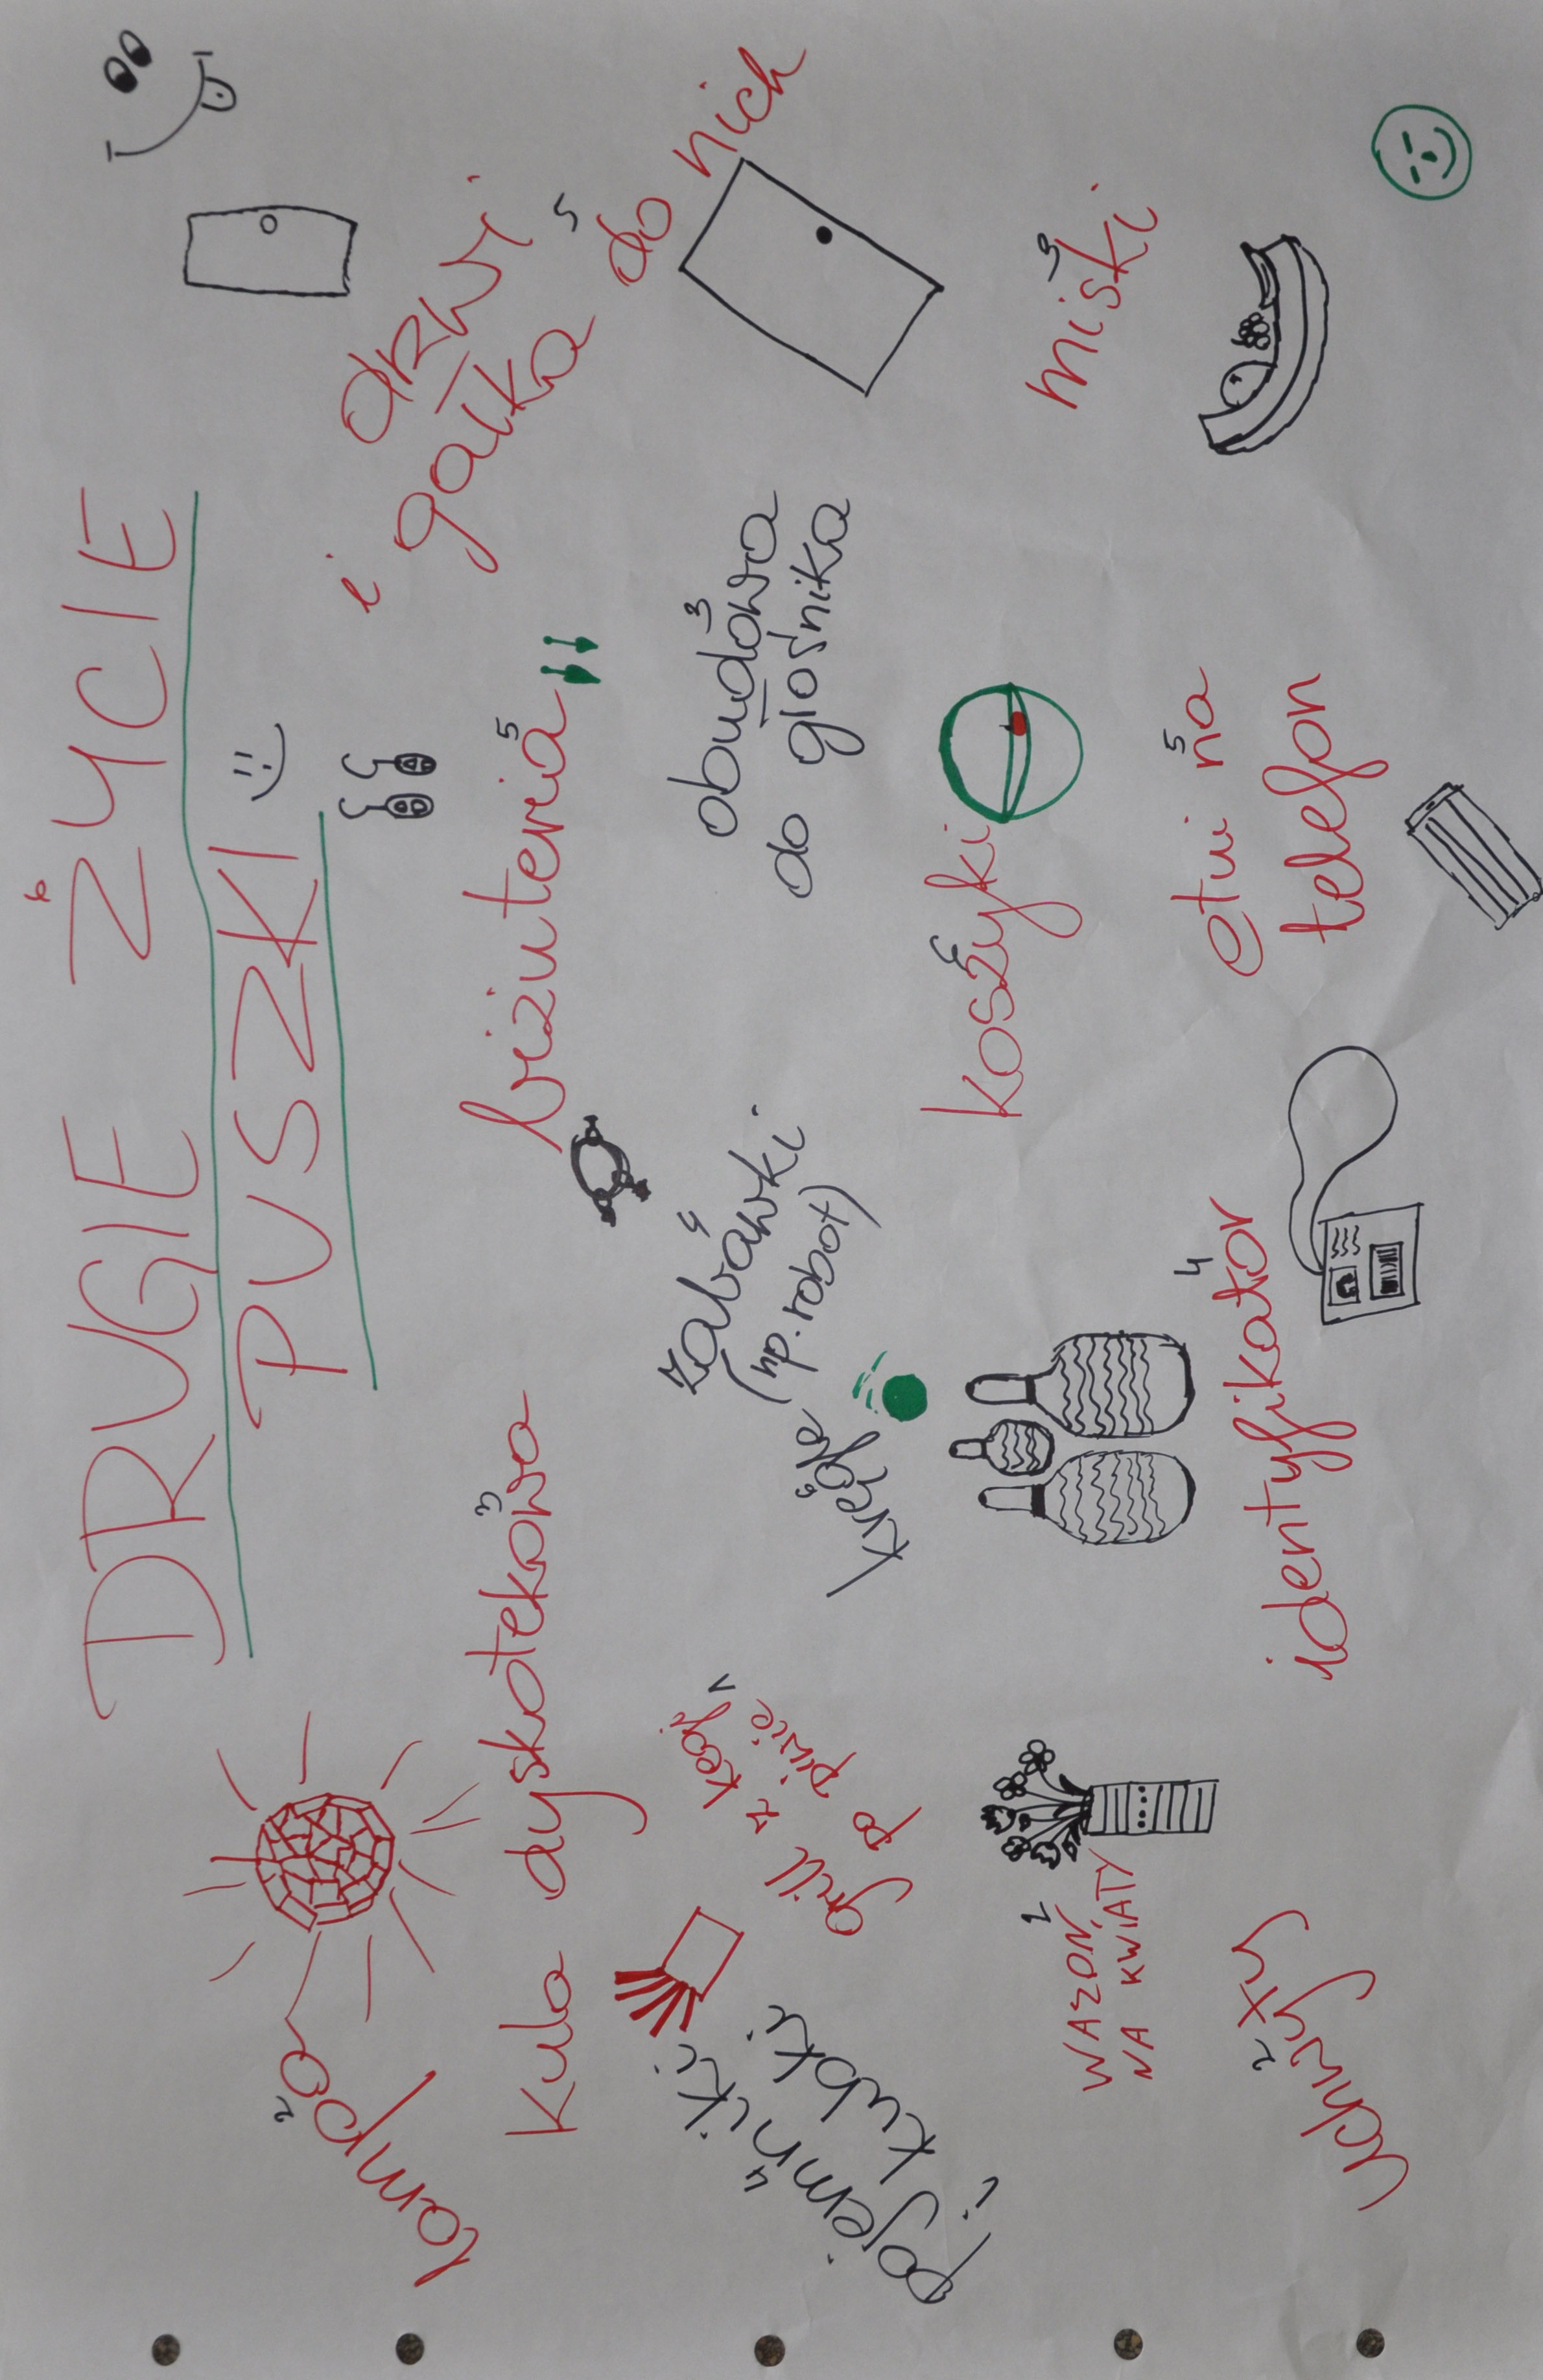 DRUGIE ŻYCIE
PUSZKI :)
lampa
2
kula dyskotekowa
3
biżuteria
5
i
drzwi
gałka
do nich
5
pojemniki
i kubki
4
grill z kegi
po piwie
1
zabawki
(np. robot)
4
kręgle
obudowa
do głośnika
3
WAZON
NA KWIATY
1
koszyki
miski
uchwyty
2
identyfikator
4
etui na
telefon
5